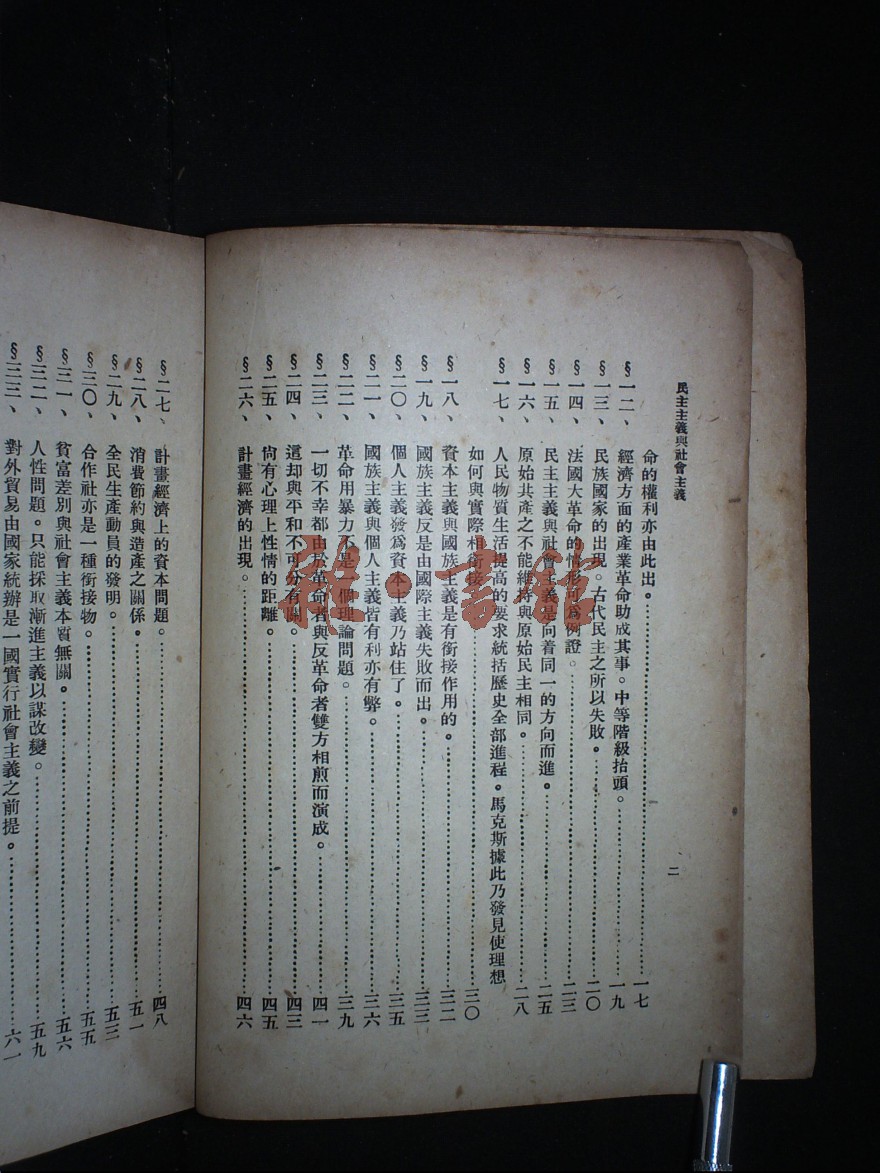 民主主義與社會主義
二
命的權利亦由此出。⋯⋯一七
§一二、經濟方面的產業革命助成其事。中等階級抬頭。⋯⋯一九
§一三、民族國家的出現。古代民主之所以失敗。⋯⋯二〇
§一四、法國大革命的情形可為例證。⋯⋯二三
§一五、民主主義與社會主義是向着同一的方向而進。⋯⋯二五
§一六、原始共產之不能維持與原始民主相同。⋯⋯二八
§一七、人民物質生活提高的要求統括歷史全部進程。馬克斯據此乃發見使理想
如何與實際相銜接。⋯⋯三〇
§一八、資本主義與國族主義是有銜接作用的。⋯⋯三二
§一九、國族主義反是由國際主義失敗而出。⋯⋯三三
§二〇、個人主義發爲資本主義乃站住了。⋯⋯三五
§二一、國族主義與個人主義皆有利亦有弊。⋯⋯三六
§二二、革命用暴力不是一個理論問題。⋯⋯三九
§二三、一切不幸都由於革命者與反革命者雙方相煎而演成。⋯⋯四一
§二四、這却與平和不可分有關。⋯⋯四三
§二五、尙有心理上性情的距離。⋯⋯四五
§二六、計畫經濟的出現。⋯⋯四六
§二七、計畫經濟上的資本問題。⋯⋯四八
§二八、消費節約與造產之關係。⋯⋯五一
§二九、全民生產動員的發明。⋯⋯五三
§三〇、合作社亦是一種銜接物。⋯⋯五五
§三一、貧富差別與社會主義本質無關。⋯⋯五六
§三二、人性問題。只能採取漸進主義以謀改變。⋯⋯五九
§三三、對外貿易由國家統辦是一國實行社會主義之前提。⋯⋯六一
雜·書館